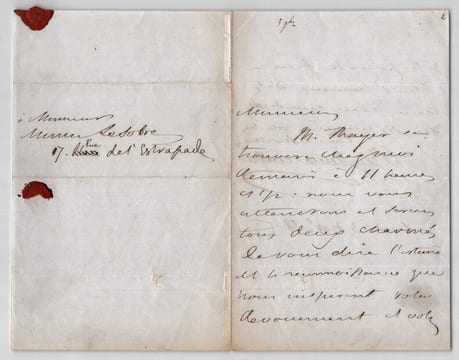 à Monsieur
Monsieur Lesobre
17. Rue de l'Estrapade
2
Monsieur
M. Mayer se
trouvera chez moi
demain à 11 heures
nous vous
attendrons et serons
tous deux charmés
de vous dire l'estime
et la reconnoissance que
nous inspirent votre
dévouement et votre